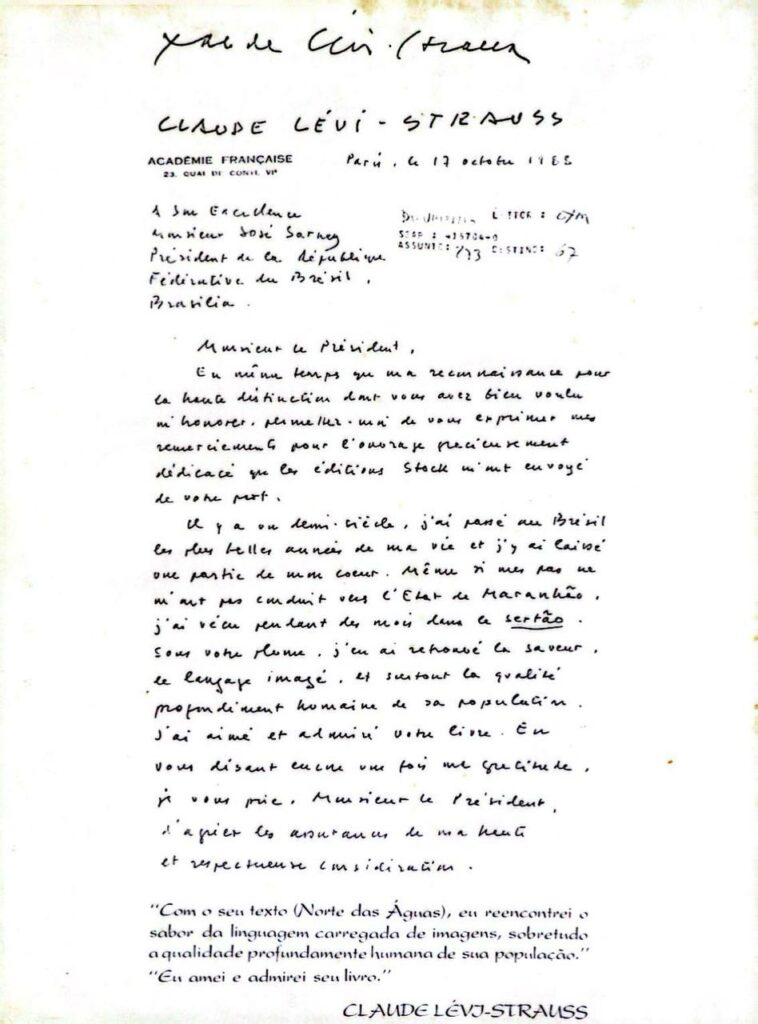 Claude Lévi-Strauss
CLAUDE LÉVI-STRAUSS
ACADÉMIE FRANÇAISE
23, QUAI DE CONTI, VIe
Paris, le 17 octobre 198
A Son Excellence
Monsieur José Sarney
Président de la République
Fédérative du Brésil,
Brasilia.
ASSUNTO: 733 DESTINO: 67
Monsieur le Président,
En même temps que ma reconnaissance pour
la haute distinction dont vous avez bien voulu
m'honorer, permettez-moi de vous exprimer mes
remerciements pour l'ouvrage précieusement
dédicacé que les éditions Stock m'ont envoyé
de votre part.
Il y a un demi-siècle, j'ai passé au Brésil
les plus belles années de ma vie et j'y ai laissé
une partie de mon coeur. Même si mes pas ne
m'ont pas conduit vers l'Etat de Maranhão,
j'ai vécu pendant des mois dans le sertão.
Sous votre plume, j'en ai retrouvé la saveur,
le langage imagé, et surtout la qualité
profondément humaine de sa population.
J'ai aimé et admiré votre livre. En
vous disant encore une fois ma gratitude,
je vous prie, Monsieur le Président,
d'agréer les assurances de ma haute
et respectueuse considération.
"Com o seu texto (Norte das Águas), eu reencontrei o
sabor da linguagem carregada de imagens, sobretudo
a qualidade profundamente humana de sua população."
"Eu amei e admirei seu livro."
CLAUDE LÉVI-STRAUSS